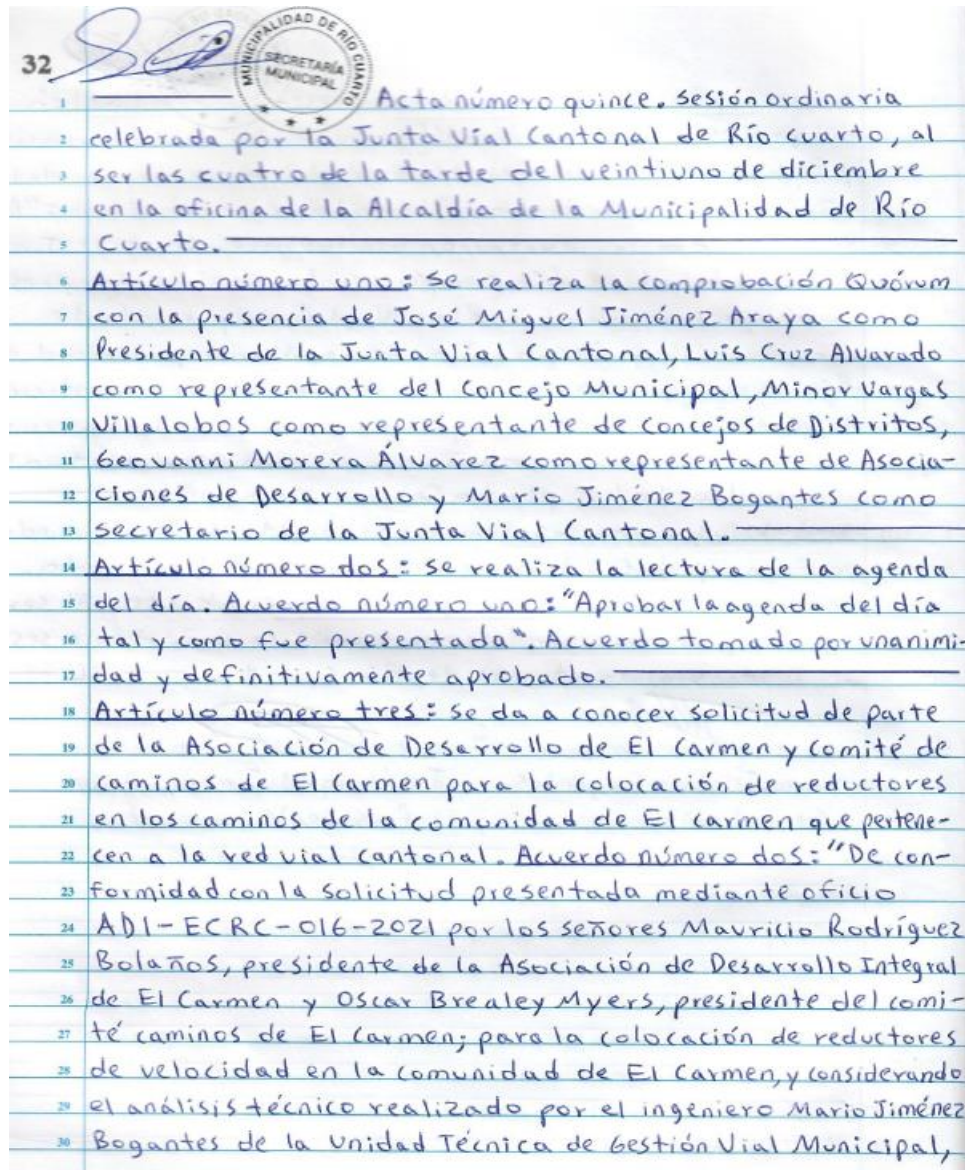 32
MUNICIPALIDAD DE RÍO CUARTO
SECRETARÍA
MUNICIPAL
1 Acta número quince. Sesión ordinaria
2 celebrada por la Junta Vial Cantonal de Río Cuarto, al
3 ser las cuatro de la tarde del veintiuno de diciembre
4 en la oficina de la Alcaldía de la Municipalidad de Río
5 Cuarto.
6 Artículo número uno: Se realiza la comprobación Quórum
7 con la presencia de José Miguel Jiménez Araya como
8 Presidente de la Junta Vial Cantonal, Luis Cruz Alvarado
9 como representante del Concejo Municipal, Minor Vargas
10 Villalobos como representante de Concejos de Distritos,
11 Geovanni Morera Álvarez como representante de Asocia-
12 ciones de Desarrollo y Mario Jiménez Bogantes como
13 secretario de la Junta Vial Cantonal.
14 Artículo número dos: se realiza la lectura de la agenda
15 del día. Acuerdo número uno: "Aprobar la agenda del día
16 tal y como fue presentada". Acuerdo tomado por unanimi-
17 dad y definitivamente aprobado.
18 Artículo número tres: se da a conocer solicitud de parte
19 de la Asociación de Desarrollo de El Carmen y comité de
20 caminos de El Carmen para la colocación de reductores
21 en los caminos de la comunidad de El Carmen que pertene-
22 cen a la red vial cantonal. Acuerdo número dos: "De con-
23 formidad con la solicitud presentada mediante oficio
24 ADI-ECRC-016-2021 por los señores Mauricio Rodríguez
25 Bolaños, presidente de la Asociación de Desarrollo Integral
26 de El Carmen y Oscar Brealey Myers, presidente del comi-
27 té caminos de El Carmen; para la colocación de reductores
28 de velocidad en la comunidad de El Carmen, y considerando
29 el análisis técnico realizado por el ingeniero Mario Jiménez
30 Bogantes de la Unidad Técnica de Gestión Vial Municipal,